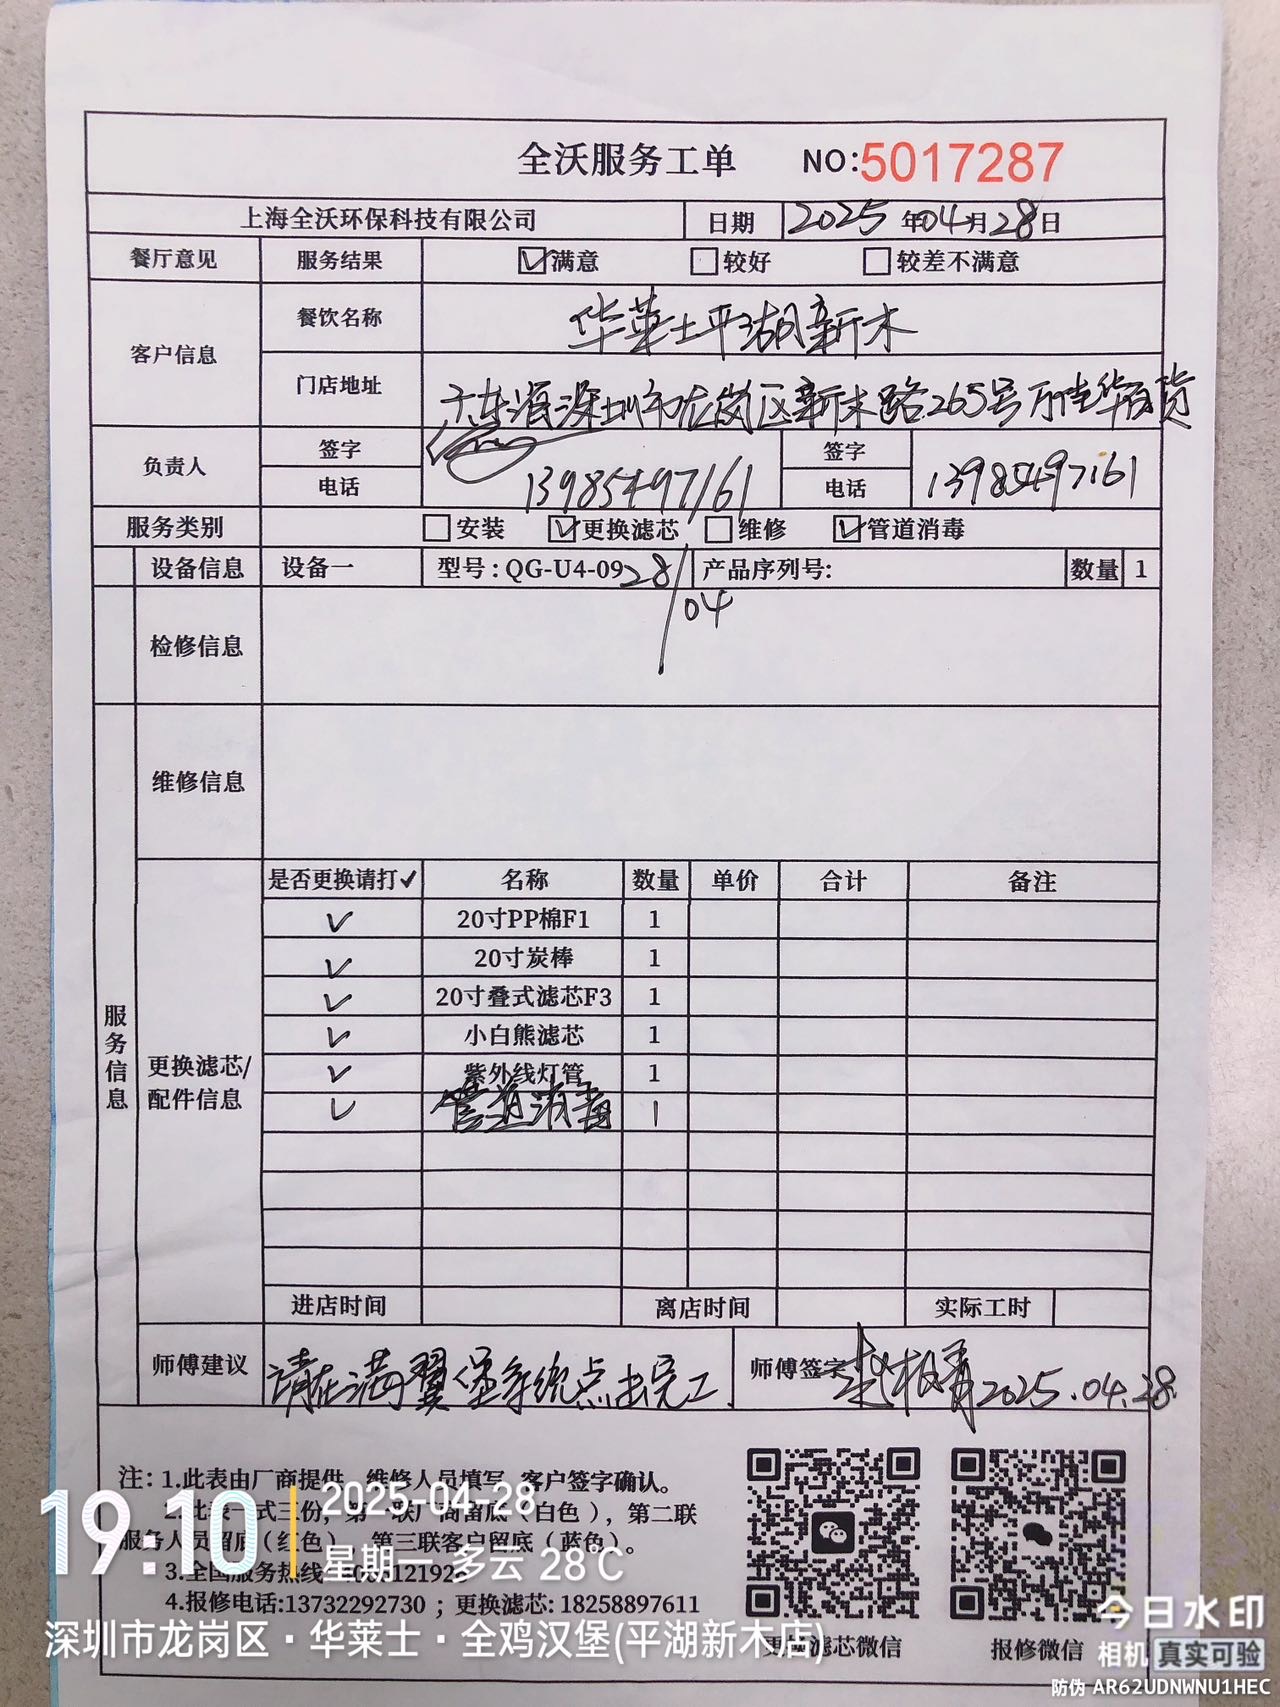 全沃服务工单 NO:5017287
上海全沃环保科技有限公司 日期 2025年04月28日
餐厅意见 服务结果 ☑满意 □较好 □较差不满意
客户信息 餐饮名称 华莱士平湖新木
门店地址 广东海深圳市龙岗区新木路265号万佳华百货
负责人 签字 签字
电话 13985497161 电话 13985497161
服务类别 □安装 ☑更换滤芯 □维修 ☑管道消毒
设备信息 设备一 型号:QG-U4-09 28/04 产品序列号: 数量 1
检修信息
维修信息
服务信息
更换滤芯/配件信息
是否更换请打✓ 名称 数量 单价 合计 备注
✓ 20寸PP棉F1 1
✓ 20寸炭棒 1
✓ 20寸叠式滤芯F3 1
✓ 小白熊滤芯 1
✓ 紫外线灯管 1
✓ 管道消毒 1
进店时间 离店时间 实际工时
师傅建议 请在满翼堡系统点击完工. 师傅签字 2025.04.28
注: 1.此表由厂商提供,维修人员填写,客户签字确认。
2.此表一式三份,第一联厂商留底(白色),第二联
服务人员留底(红色),第三联客户留底(蓝色)。
3.全国服务热线
4.报修电话:13732292730 ; 更换滤芯: 18258897611
更换滤芯微信 报修微信
19:10 2025-04-28
星期一 多云 28℃
深圳市龙岗区·华莱士·全鸡汉堡(平湖新木店)
今日水印
相机 真实可验
防伪 AR62UDNWNU1HEC